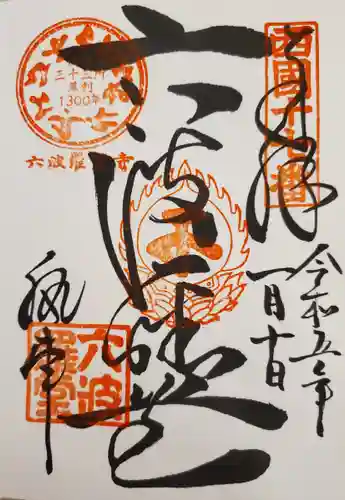 奉拝
西國十七番
令和五年
一月十日
六波羅堂
三十三所
草創
1300年
六波羅蜜寺
六波羅堂
執事